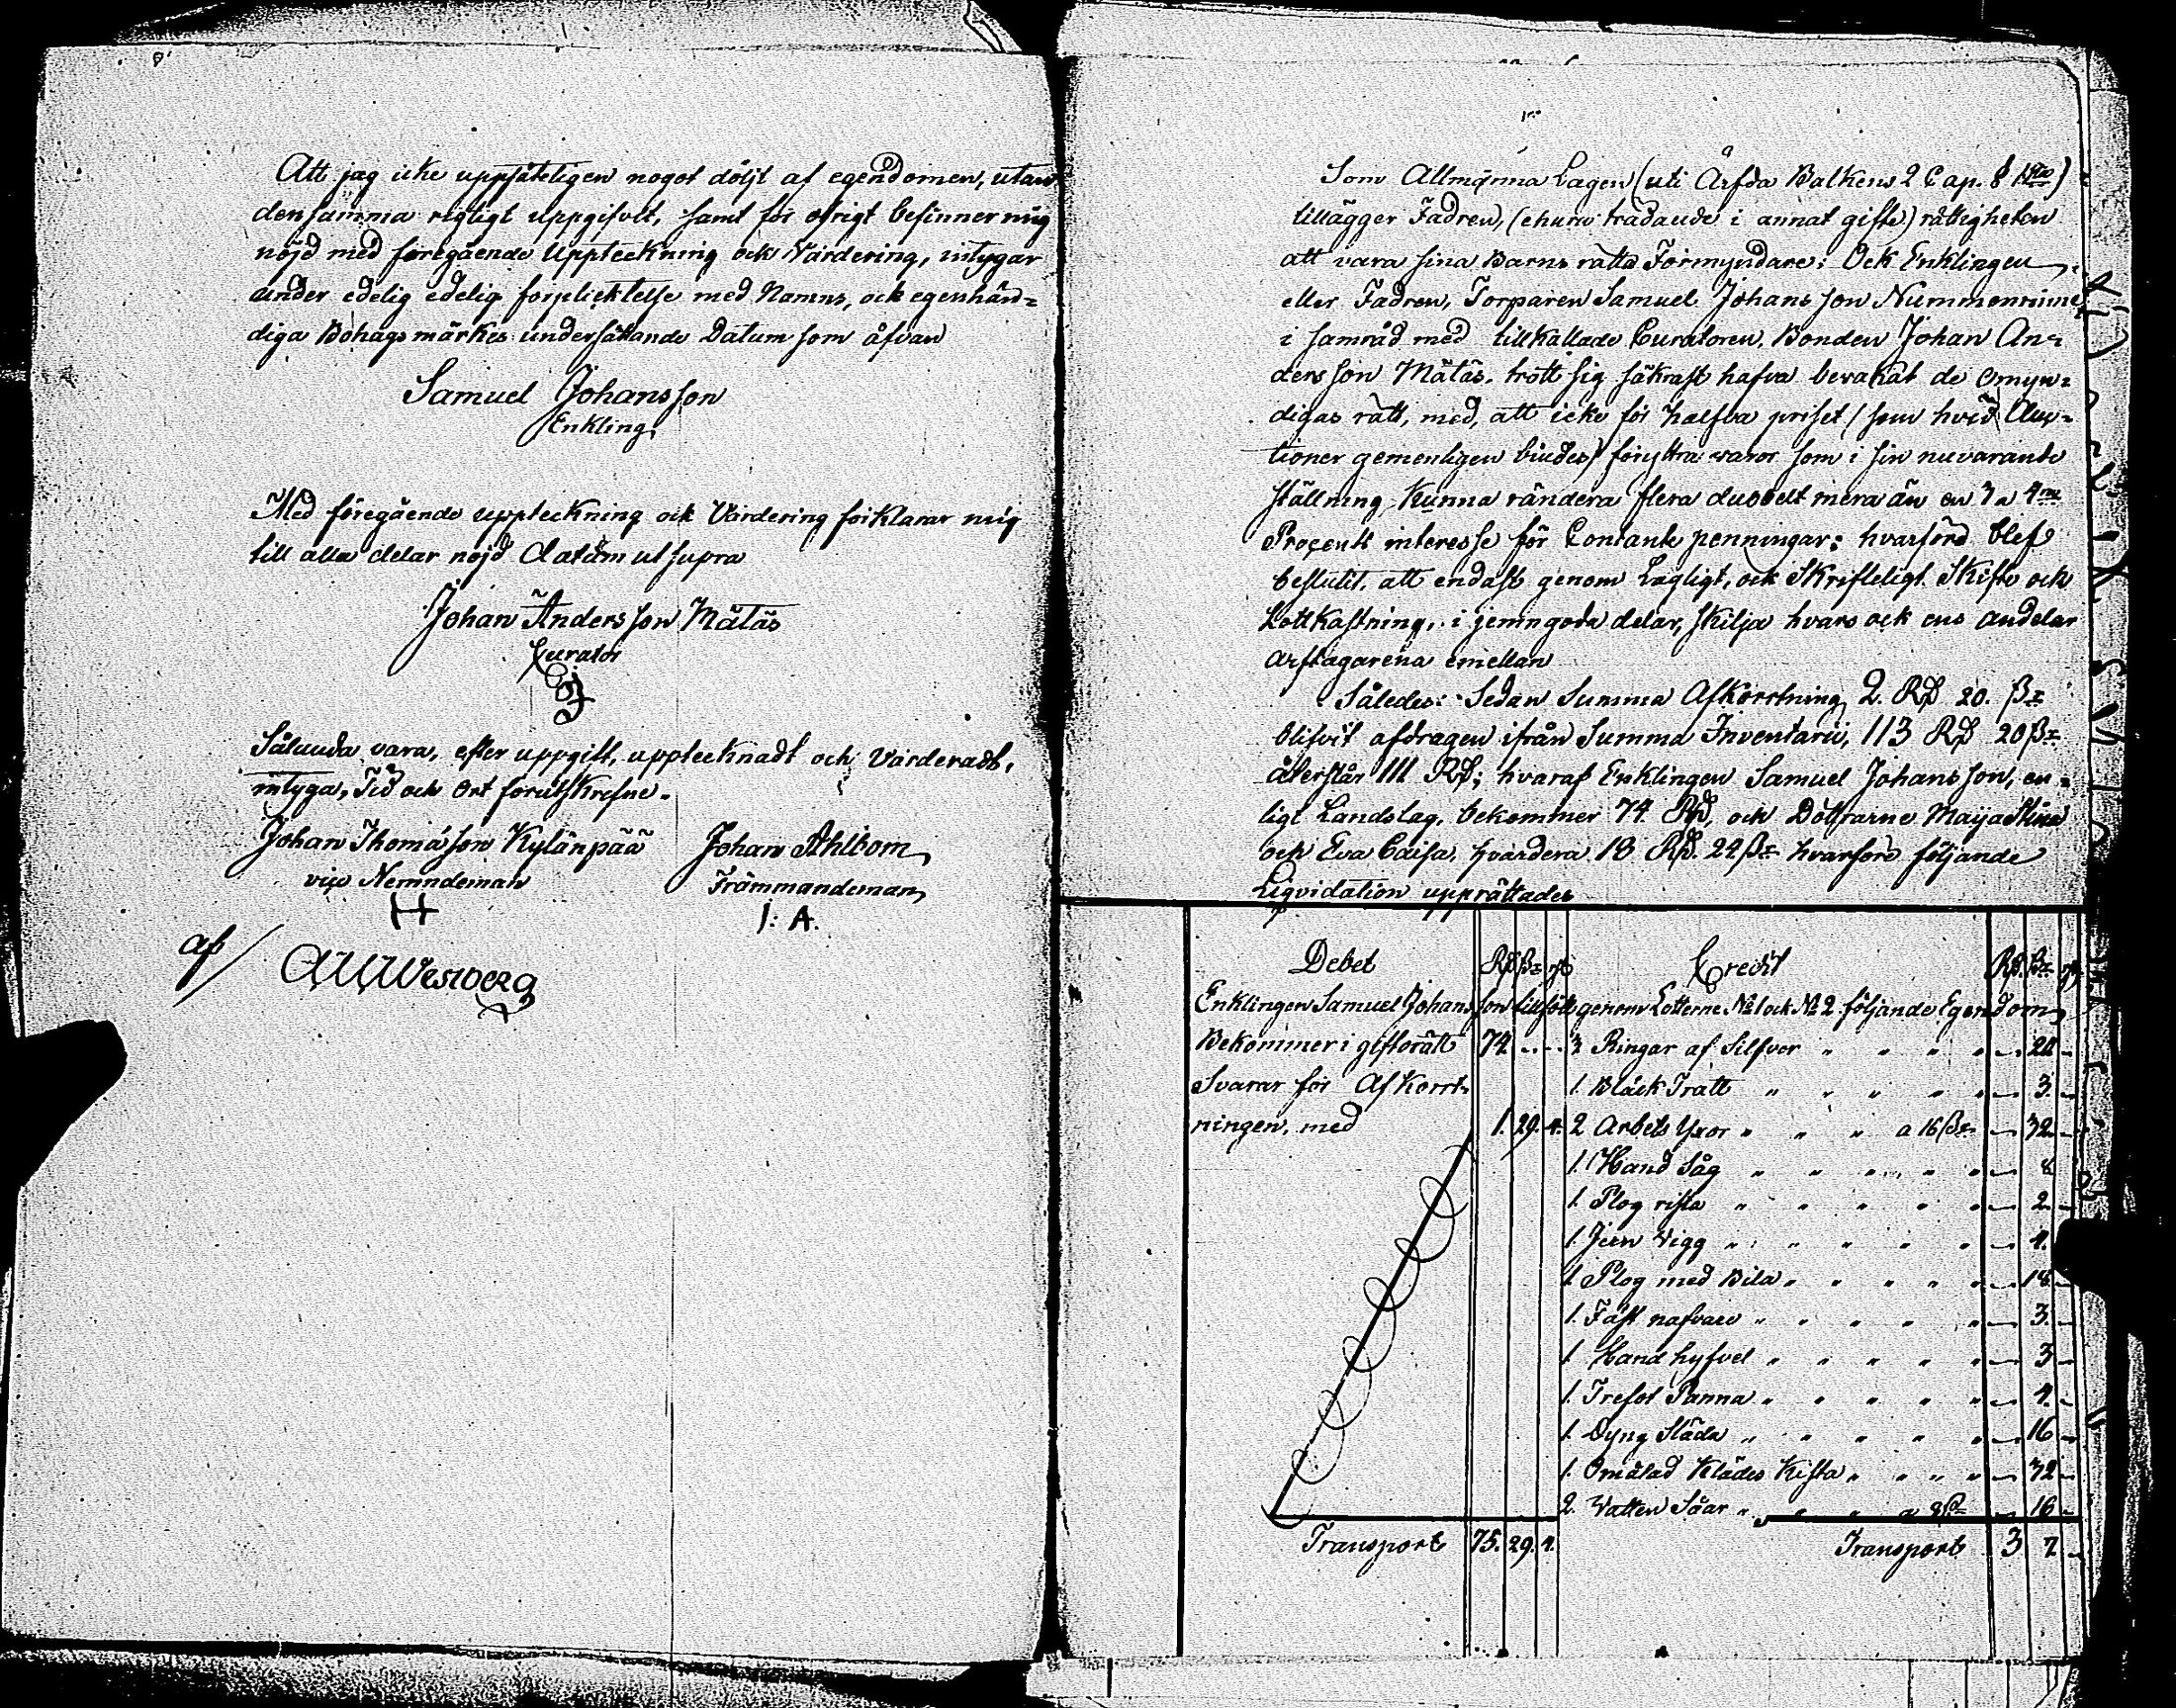 Att jag icke uppsåteligen nogot döljt af egendomen, utan
densamma rigtigt uppgifvit, samt för öfrigt befinner mig
nöjd med föregående Uppteckning ock Värdering, intygar
under edelig edelig förpliektelse med Namns, ock egenhän=
diga Bohagsmärkes undersättande Datum som åfvan
Samuel Johansson
Enkling
Med föregående uppteckning ock Värdering förklarar mig
till alla delar nöjd datum ut supra
Johan Andersson Mätäs
Curator
Sålunda vara, efter uppgift, upptecknadt och Värderadt,
intyga, Tid och Ort förutskrefne.
Johan Thomasson Kylänpää Johan Ahlbom
vice Nemndeman Främmandeman
H I: A.
af/ Westberg
Som Allmänna Lagen (uti Ärfda Balkens 2 Cap. §
tillägger Fadren, (ehuru trädande i annat gifte) rättigheten
att vara sina Barns rätta Förmyndare: Ock Enklingen
eller Fadren, Torparen Samuel Johansson Nummenniime
i samråd med tillkallade Curatoren, Bonden Johan An=
dersson Mätäs, trott sig säkrast hafva bevakat de omyn=
digas rätt, med, att icke för halfva priset (som hvid Auc=
tioner gemenligen biudes) föryttra varor som i sin nuvarande
ställning kunna rändera flera dubbelt mera än en 3 a 4
Procents interesse för Contante penningar: hvarföre blef
beslutit, att endast genom Lagligt, ock Skrifteligt Skifte ock
Lottkastning, i jemngoda delar, skilja hvars ock ens andelar
arftagarena emellan
Således: Sedan Summa Afkorrtning 2 Rd 20. ß
blifvit afdragen ifrån Summa Inventarii, 113 Rd 20 ß
återstår 111 Rd; hvaraf Enklingen Samuel Johansson, en=
ligt Landslag, bekommer 74 Rd, ock Döttrarne Maija Stina
ock Eva Caisa, hvardera 18 Rd. 24 ß hvarföre följande
Liqvidation upprättades
Debet Rd ß rp Credit Rd. ß rp
Enklingen Samuel Johansson tillföll genom Lotterne No 1 ock No 2 följande Egendom
Bekommer i giftorätt 74 " " 3 Ringar af Silfver " " " " 24
Svarar för Afkorrt- 1. Bläck Tratt " " " " " 3.
ningen, med 1. 29. 4. 2 Arbets Yxor " " " a 16 ß 32
1. Hand Såg " " " " " 8
1. Plog rista " " " " " 2.
1. Jern Vigg " " " " " 4.
1. Plog med Bila " " " " " 18
1. Fäst nafvare " " " " " 3.
1 Hand hyfvel " " " " " 3
1. Trefot Panna " " " " " 4.
1. Dyng Släda " " " " " 16
1. Omålad Klädes Kista " " " " 32
2. Vatten Såar " " " a 8 ß 16
Transport 75. 29. 4. Transport 3 7